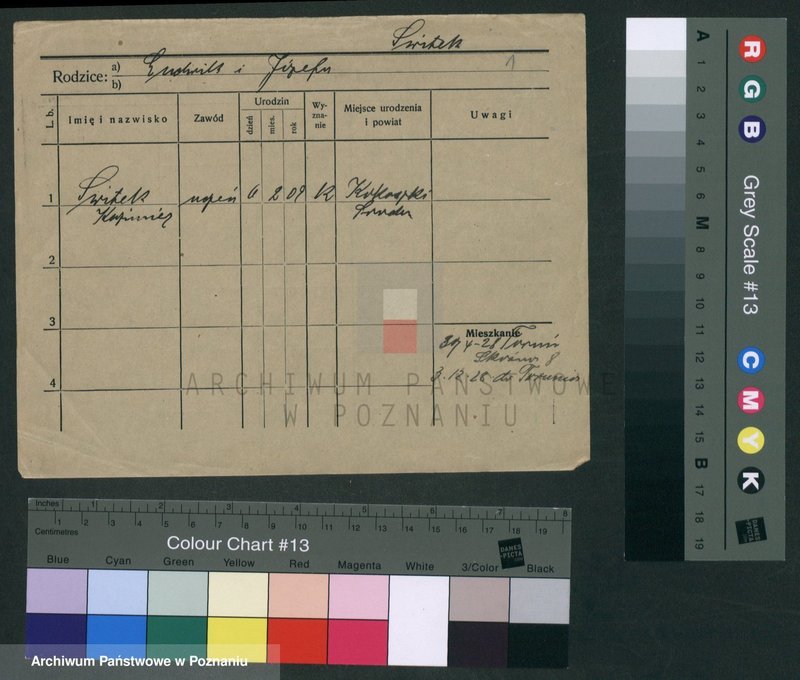 Świtek
Rodzice: a) Ludwik i Józefa 1
b)
L. b.
Imię i nazwisko
Zawód
Urodzin
dzień
mies.
rok
Wy-
zna-
nie
Miejsce urodzenia
i powiat
Uwagi
1 Świtek uczeń 2 09 K
Kazimierz Środa
2
3
Mieszkanie
28 Toruń
8
4
3.12.28 do Torunia
ARCHIWUM PAŃSTWOWE
W POZNANIU
Inches 1 2 3 4 5 6 7 8
Centimetres 1 2 3 4 5 6 7 8 9 10 11 12 13 14 15 16 17 18 19
Colour Chart #13
DANES
PICTA
Blue Cyan Green Yellow Red Magenta White 3/Color Black
Archiwum Państwowe w Poznaniu
A 1 2 3 4 5 6 M 8 9 10 11 12 13 14 15 B 17 18 19
R G B
Grey Scale #13
C M Y K
DANES
PICTA